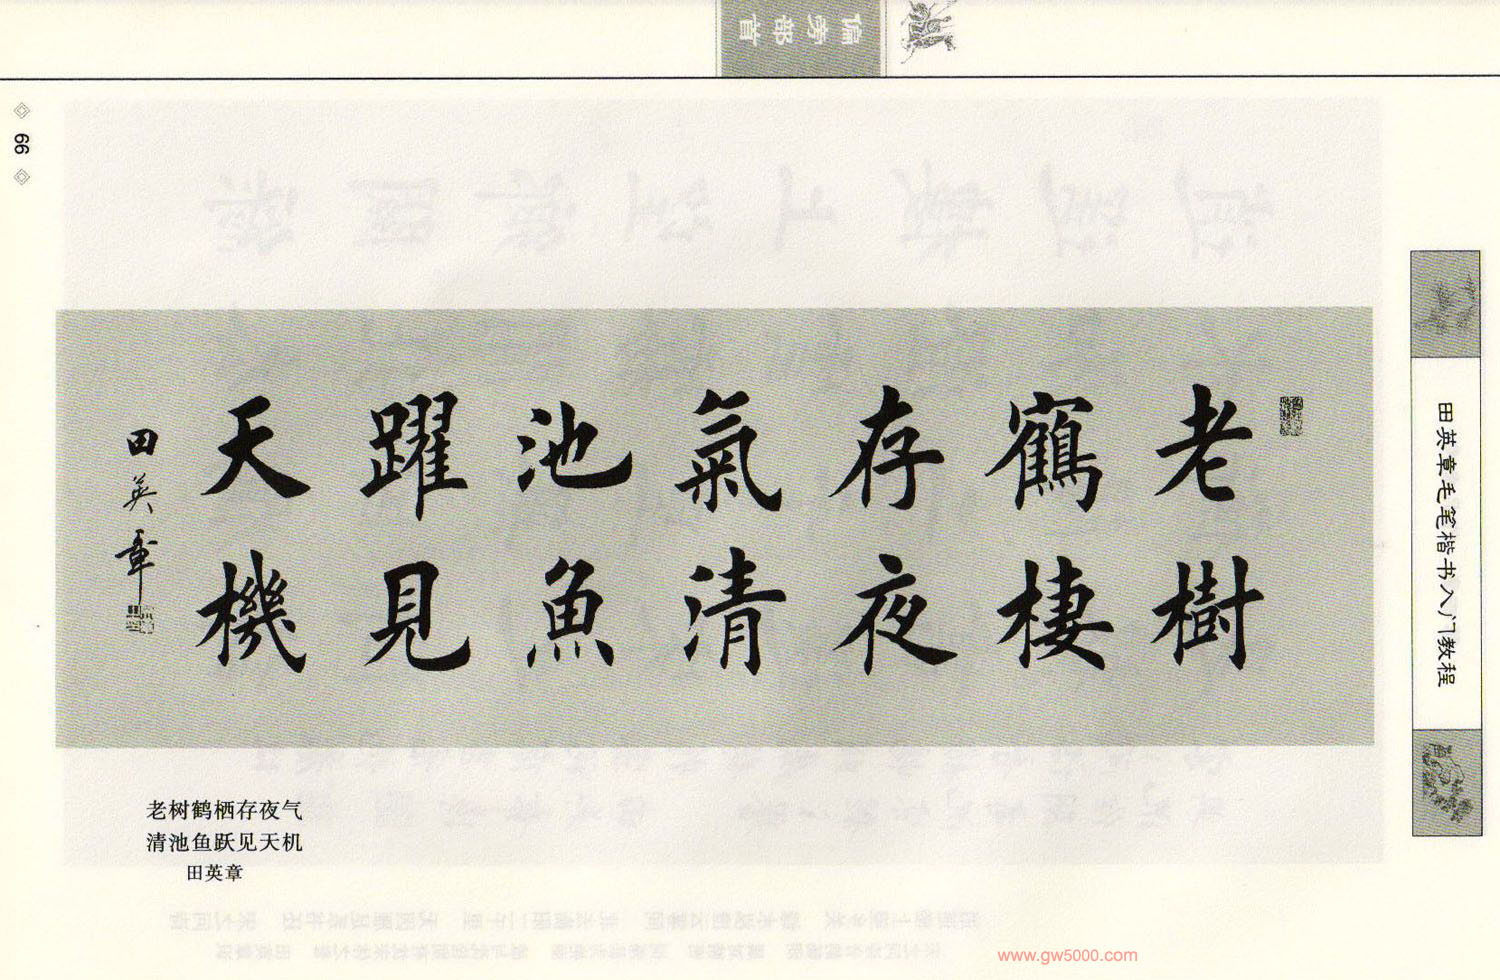 偏旁部首
66
田英章毛笔楷书入门教程
老樹
鶴棲
存夜
氣清
池魚
躍見
天機
田英章
老树鹤栖存夜气
清池鱼跃见天机
田英章
www.gw5000.com